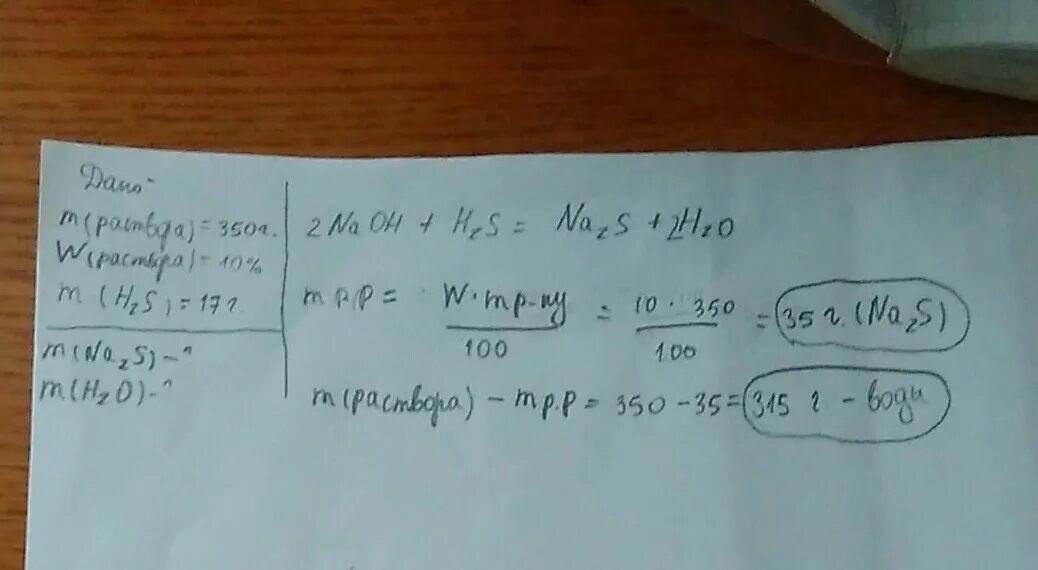 Дано:
m(раствора) = 350г.
W(раствора) = 10%
m (H₂S) = 17г.
m(Na₂S) - ?
m(H₂O) - ?
2NaOH + H₂S = Na₂S + 2H₂O
m р.р = W · m р-ну / 100 = 10 · 350 / 100 = 35 г. (Na₂S)
m(раствора) - m р.р = 350 - 35 = 315 г - води